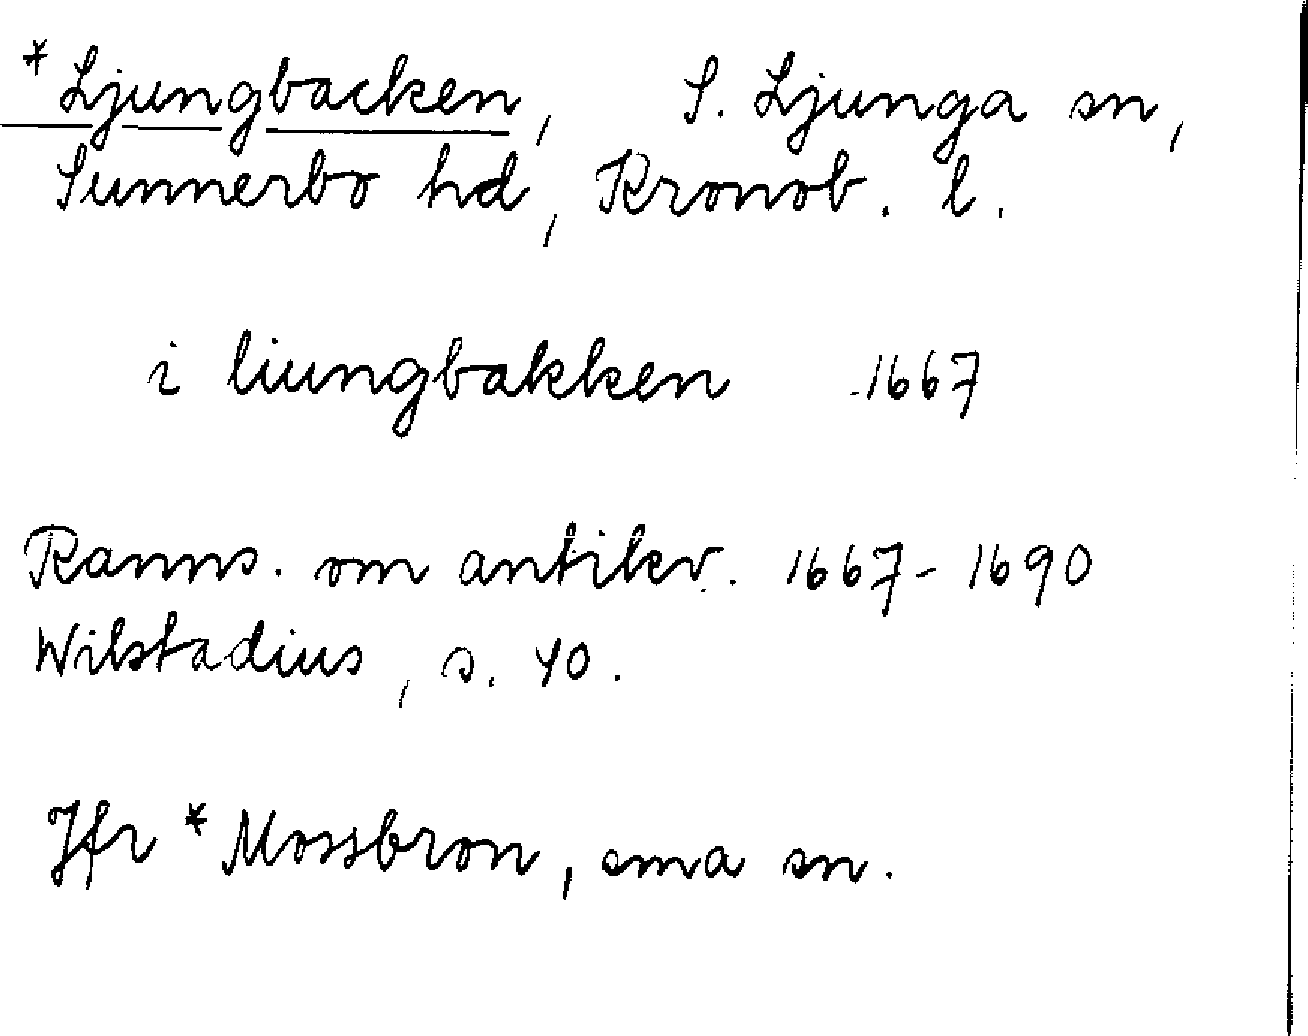 *Ljungbacken, S. Ljunga sn,
Sunnerbo hd, Kronob. l.
i liungbakken 1667
Ranns. om antikv. 1667-1690
Wilstadius, s. 40.
Jfr *Mossbron, sma sn.